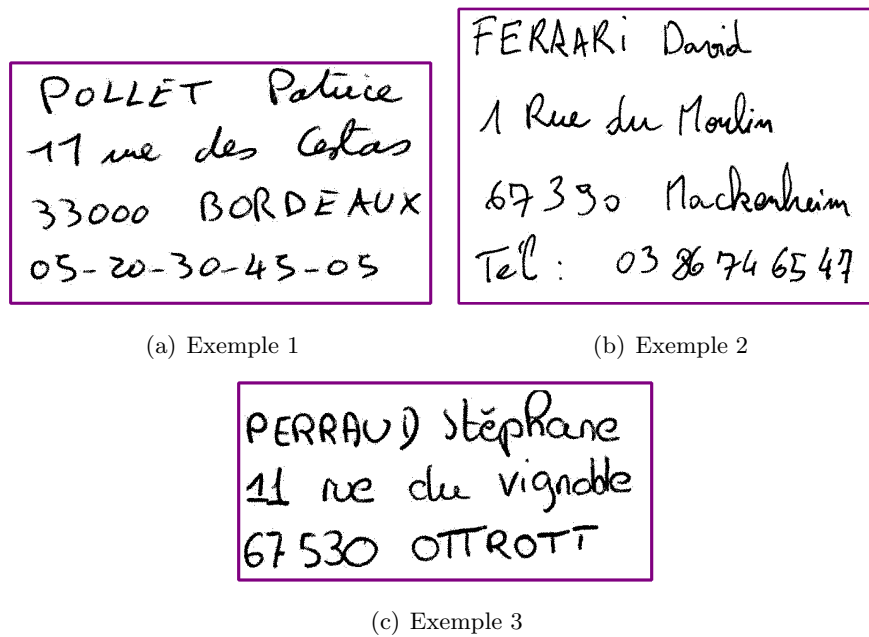 POLLET Patrice
11 rue des Cestas
33000 BORDEAUX
05-20-30-45-05
(a) Exemple 1
FERRARi David
1 Rue du Moulin
67390 Mackenheim
Tél : 03 86 74 65 47
(b) Exemple 2
PERRAUD Stéphane
11 rue du vignoble
67530 OTTROTT
(c) Exemple 3